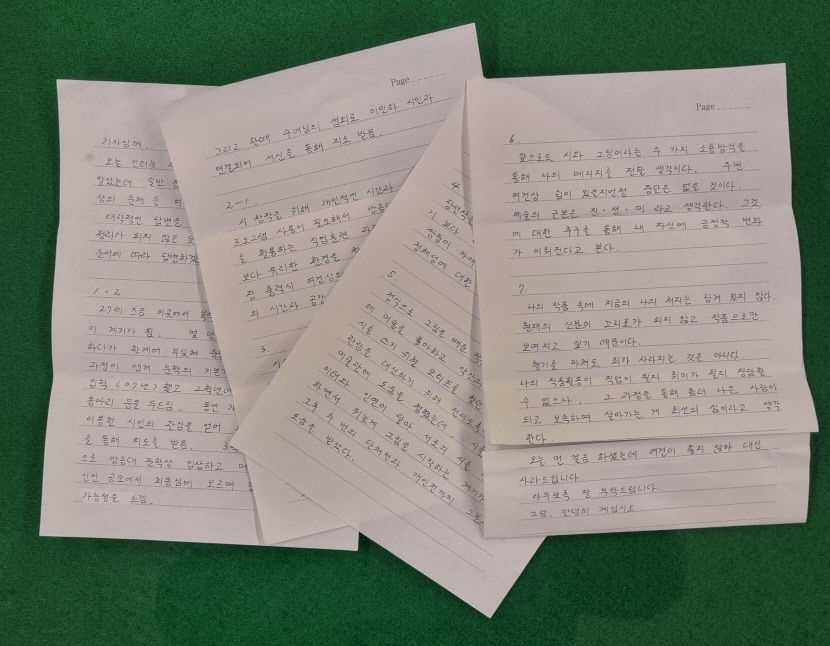 기자님께.
오늘 인터뷰
알았는데 일반
상의 문제 등
대략적인 답변을
정리가 되지 않은
순서에 따라 답변하겠
1 - 2
27세 즈음 이곳에서
이 계기가 됨. 몇
하다가 한계에 부딪혀
과정이 생겨 문학의 기본
입학 (07년) 했고 2학년
동아리 문을 두드림. 동안
이용헌 시인의 관심을 얻어
을 통해 지도를 받음.
으로 방송대 문학상 입상하고
신인 공모에서 최종심에 오르며
가능성을 느낌.
Page
그리고 한때 수녀님의 섭외로 이민하 시인과
연결되어 서신을 통해 지도 받음.
2-1.
시 창작을 위해 개인적인 시간과
프로그램 사용이 필요해서 방송
를 활용하는 직업훈련
보다 유리한 환경을
장 출력시 여건상의
의 시간과 공간
3.
4.
기 보다
작품이
정체성에 대한
5.
정식으로 그림을 배운
에 미술을 좋아하고 약간의
시를 쓰기 위한 모티브를 찾던
관람을 대신하기 위해 전시도록
미술관에 도움을 청했는데, 시를
이터와 인연이 닿아 서로의 시를
하면서 뒤늦게 그림을 시작하는 계기가
그후 수 번의 단체전과 개인전까지
도움을 받았다.
Page
6.
앞으로도 시와 그림이라는 두 가지 소통방식을
통해 나의 메시지를 전할 생각이다. 주변
여건상 쉼이 있을지언정 중단은 없을 것이다.
예술의 근본은 진·선·미 라고 생각한다. 그것
에 대한 추구를 통해 내 자신에 긍정적 변화
가 이뤄진다고 본다.
7
나의 작품 속에 지금의 나의 처지는 담겨 있지 않다.
현재의 신분이 꼬리표가 되지 않고 작품으로만
보여지고 싶기 때문이다.
형기를 마쳐도 죄가 사라지는 것은 아니다.
나의 작품활동이 직업이 될지 취미가 될지 장담할
수 없으나, 그 과정을 통해 좀더 나은 사람이
되고 보속하며 살아가는 게 최선의 삶이라고 생각
한다.
오늘 먼 걸음 하셨는데 여건이 좋지 않아 대신
사과드립니다
아무쪼록 잘 부탁드립니다.
그럼, 안녕히 계십시오